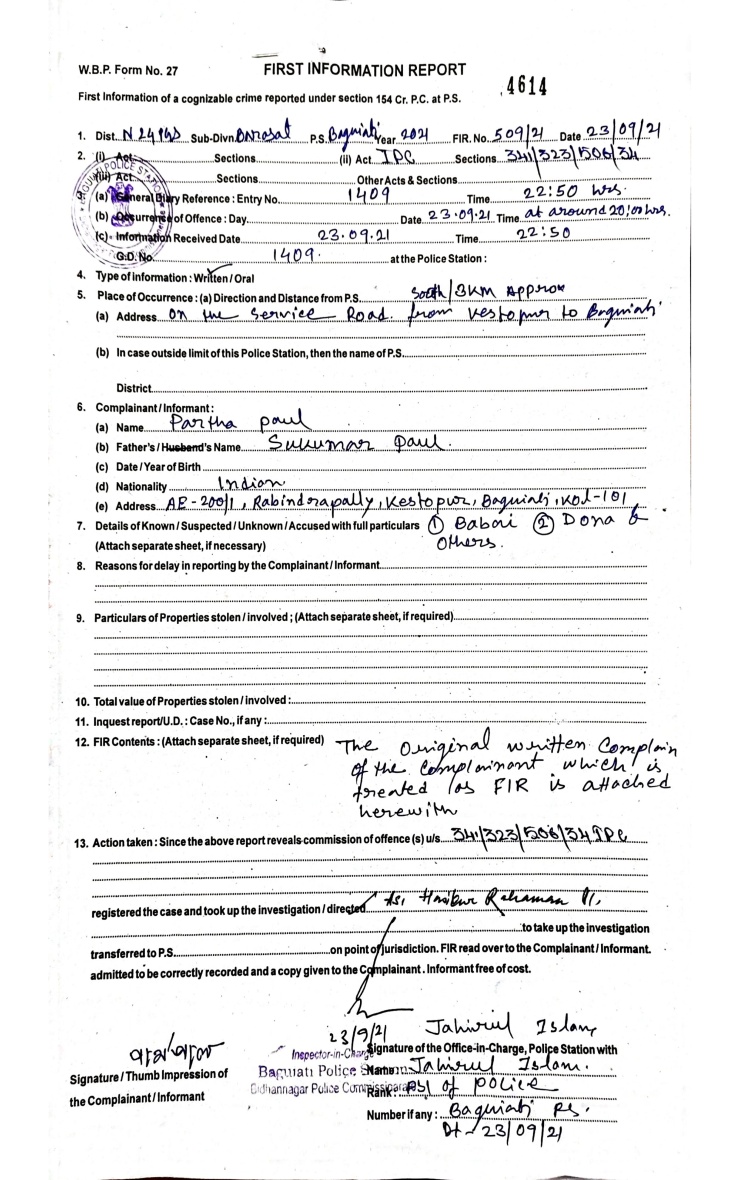 W.B.P. Form No. 27 FIRST INFORMATION REPORT 4614
First Information of a cognizable crime reported under section 154 Cr. P.C. at P.S.
1. Dist. N 24 PGS Sub-Divn Barasat P.S. Baguiati Year 2021 FIR. No. 509/21 Date 23/09/21
2. (i) Act Sections (ii) Act IPC Sections 341/323/506/34
(iii) Act Sections Other Acts & Sections
(a) General Diary Reference : Entry No. 1409 Time 22:50 hrs.
(b) Occurrence of Offence : Day Date 23.09.21 Time at around 20:00 hrs.
(c) Information Received Date 23.09.21 Time 22:50
G.D. No. 1409. at the Police Station :
4. Type of information : Written / Oral
5. Place of Occurrence : (a) Direction and Distance from P.S. South/3KM Approx
(a) Address on the Service Road from Kestopur to Baguiati
(b) In case outside limit of this Police Station, then the name of P.S.
District
6. Complainant / Informant :
(a) Name Partha Paul
(b) Father's / Husband's Name Sukumar Paul.
(c) Date / Year of Birth
(d) Nationality Indian
(e) Address AE-200/1, Rabindrapally, Kestopur, Baguiati, Kol-101
7. Details of Known / Suspected / Unknown / Accused with full particulars ① Babai ② Dona &
(Attach separate sheet, if necessary) Others.
8. Reasons for delay in reporting by the Complainant / Informant
9. Particulars of Properties stolen / involved ; (Attach separate sheet, if required)
10. Total value of Properties stolen / involved :
11. Inquest report/U.D. : Case No., if any :
12. FIR Contents : (Attach separate sheet, if required) The Original written Complain
of the Complainant which is
treated as FIR is attached
herewith
13. Action taken : Since the above report reveals commission of offence (s) u/s. 341/323/506/34 IPC
registered the case and took up the investigation / directed ASI Habibur Rahaman
to take up the investigation
transferred to P.S. on point of jurisdiction. FIR read over to the Complainant / Informant.
admitted to be correctly recorded and a copy given to the Complainant. Informant free of cost.
23/9/21 Jahirul Islam
Inspector-in-Charge Signature of the Office-in-Charge, Police Station with
Baguiati Police Station Name Jahirul Islam.
Signature / Thumb Impression of Bidhannagar Police Commissionerate Rank : of Police
the Complainant / Informant
Number if any : Baguiati PS.
Dt - 23/09/21